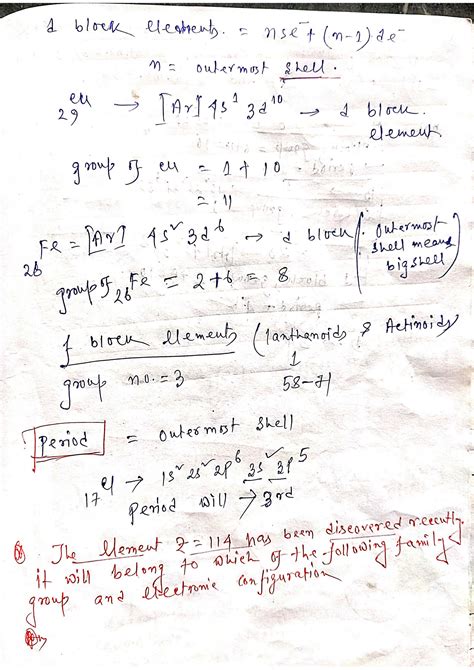 d block elements. = nse⁻ + (n-1)de⁻
n = outermost shell.
₂₉Cu → [Ar] 4s¹ 3d¹⁰ → d block
element
group of Cu = 1 + 10
= 11
₂₆Fe = [Ar] 4s² 3d⁶ → d block (Outermost
shell means
big shell)
group of ₂₆Fe = 2+6 = 8
f block elements (lanthanoids & Actinoids)
group no. = 3
58-71
Period = outermost shell
₁₇Cl → 1s² 2s² 2p⁶ 3s² 3p⁵
Period will → 3rd
Q. The element Z = 114 has been discovered recently
it will belong to which of the following family
group and electronic configuration